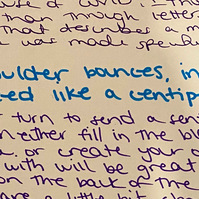 use of covid. The
than through letter
that describes a m
was made speci
oulder bounces, in
ed like a centip
turn to send a sen
either fill in the bl
or create your o
with will be great
on the back of the
are a little bit